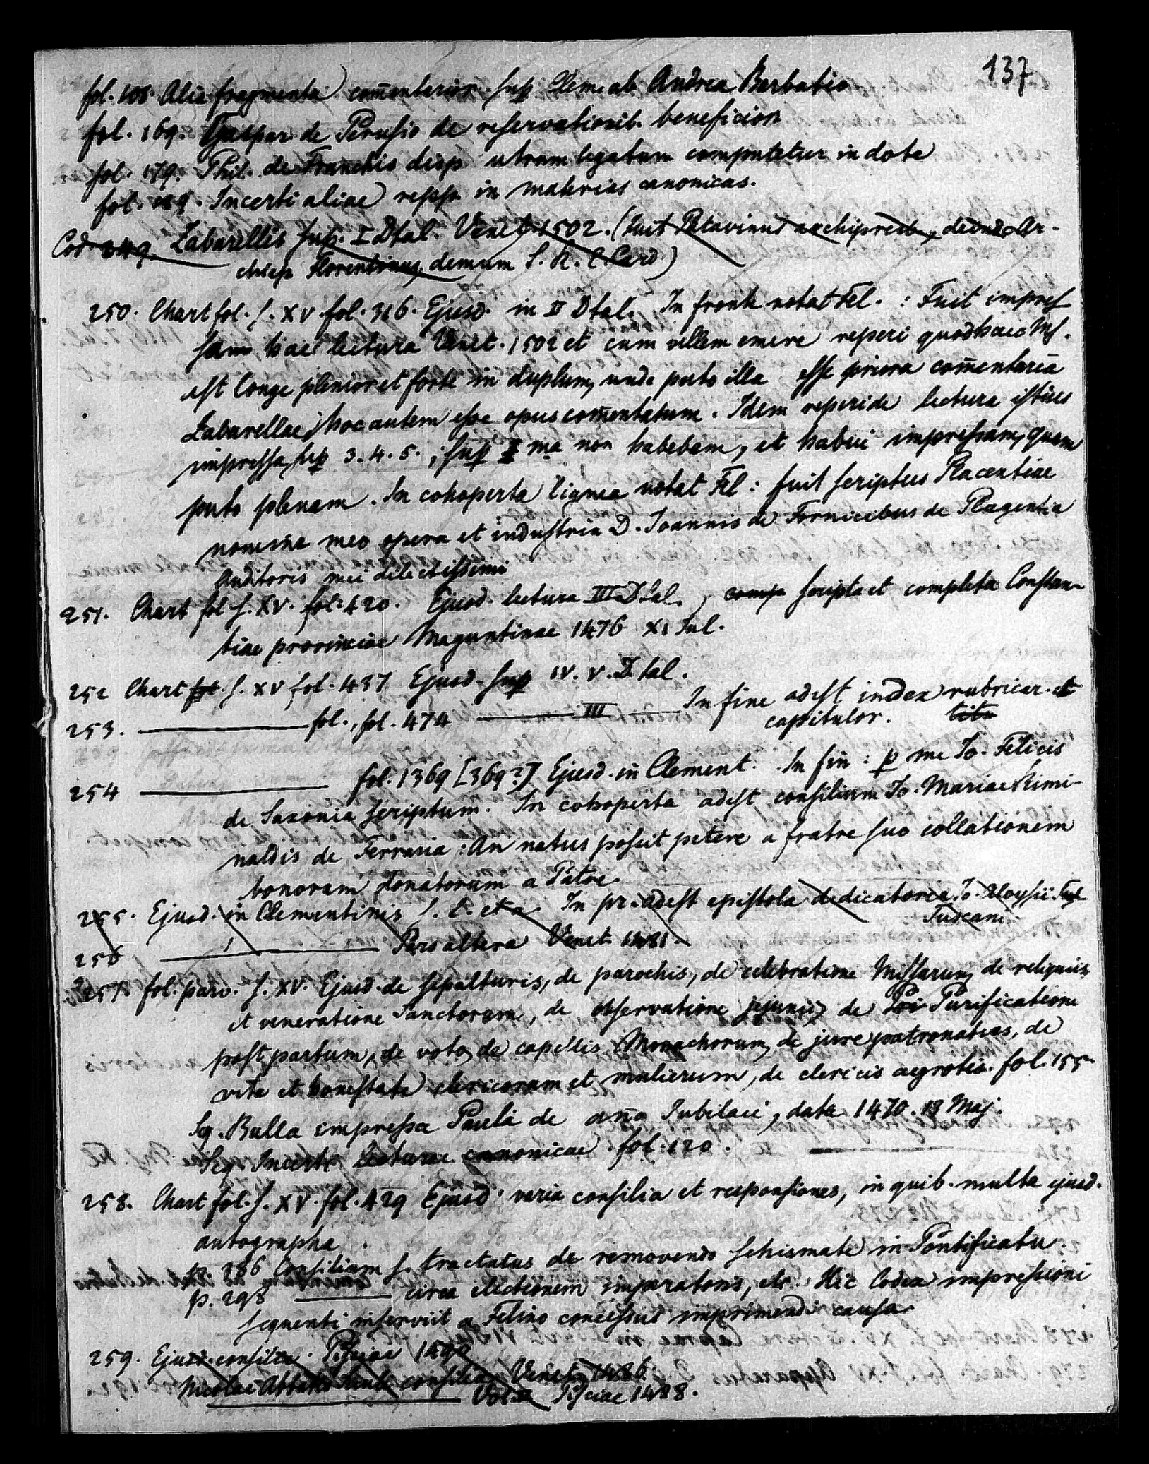 137
fol. 108. Alia fragmenta com̄entarior. sup. Clem. ab Andrea Barbatia
fol. 169. Gaspar de Perusio de reservationib. beneficior.
fol. 179. Phil. de Franchis disp. utrum legatum computetur in dote
fol. 189. Incerti aliae repet. in materias canonicas.
Cod. 249. Zabarellis sup. I Dtal. Venet. 1502. (Fuit Patavinus archipresb., deinde Ar-
chiep. Florentinus, demum S. R. E. Card)
250. Chart. fol. s. XV. fol. 316. Ejusd. in II Dtal. In fronte notat Fel. : Fuit impres
sum haec lectura Venet. 1502 et cum vellem emere reperi quod haec Ms.
est longe plenior et forte in duplum, unde puto illa esse priora com̄entaria
Zabarellae, hoc autem esse opus com̄entatum. Idem reperi de lectura istius
impressa sup 3. 4. 5. ; sup II ma non habebam, et habui impressam, quam
puto plenam. In cohoperta lignea notat Fel : fuit scriptus Placentiae
nomine meo opera et industria D. Joannis de Fornicibus de Placentia
auditoris mei dilectissimi
251. Chart fol. s. XV. fol. 420. Ejusd. lectura III Dtal. , comp scripta et completa Constan-
tiae provinciae Maguntinae 1476 XI Jul.
252 Chart fol. s. XV fol. 437 Ejusd. sup IV. V. Dtal.
253. fol., fol. 474 III In fine adest index rubricar. et
capitulor. titu
254 fol. 1369 [369?] Ejusd. in Clement. In fin : p me Jo. Felicis
de Saxonia scriptum. In cohoperta adest consilium Jo. Mariae Rimi-
naldis de Ferraria : An natus possit petere a fratre suo collationem
bonorum donatorum a Patre.
255. Ejusd. in Clementinis s. l. et a. In pr. adest epistola dedicatoria Jo. Aloysii Tus
Tuscani
256 Pars altera Venet. 1481.
257. fol. parv. s. XV. Ejusd. de sepulturis, de parochis, de celebratione Missarum, de reliquiis
et veneratione Sanctorum, de observatione jejunii, de Poi Purificatione
post partum, de voto, de capellis Monachorum, de jure patronatus, de
vita et honestate clericorum et mulierum, de clericis aegrotis. fol. 155
Sq. Bulla impressa Pauli de anno Jubilaei, data 1470. 19 Maj.
Seq. Incerti Lecturae canonicae. fol. 120.
258. Chart fol. s. XV. fol. 429 Ejusd. varia consilia et responsiones, in quib. multa ejusd.
autographa.
p. 286 Consilium s. tractatus de removendo schismate in Pontificatu
p. 298 circa electionem imparatoris, etc. Hic Codex impressioni
sequenti inserviit a Felino concessus imprimendi causa
259. Ejusd. consilia. Pisciae 1490
Nicolai Abbatis consilia Venet. 1486.
Vol. Pisciae 1488.